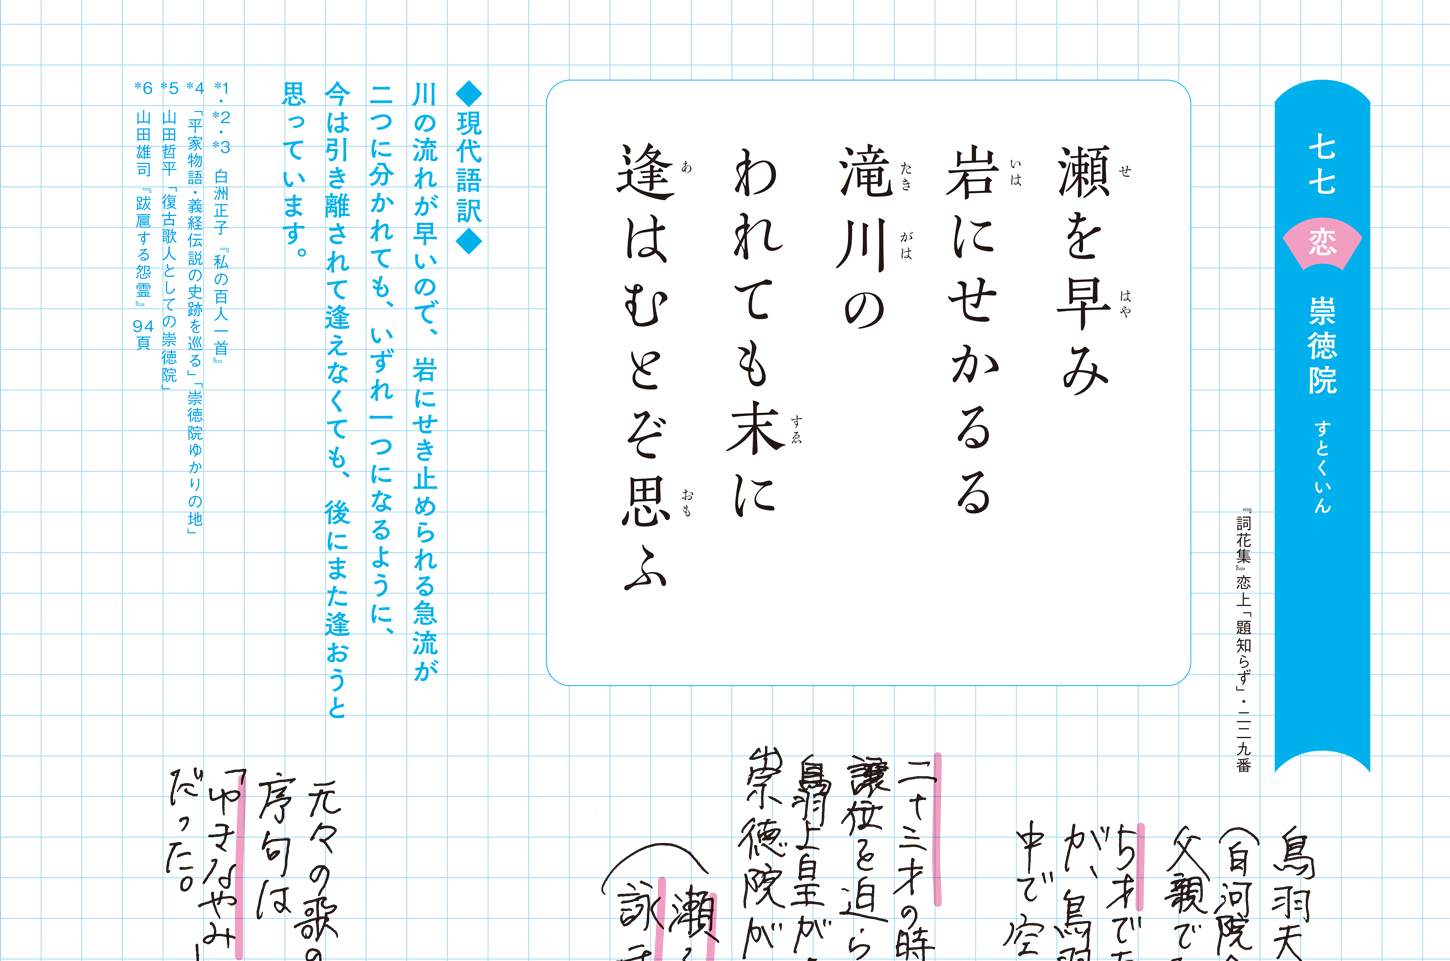 七七 恋 崇徳院 すとくいん
『詞花集』恋上「題知らず」・二二九番
瀬を早み
せ はや
岩にせかるる
いは
滝川の
たき がは
われても末に
すゑ
逢はむとぞ思ふ
あ おも
◆現代語訳◆
川の流れが早いので、岩にせき止められる急流が
二つに分かれても、いずれ一つになるように、
今は引き離されて逢えなくても、後にまた逢おうと
思っています。
*1・*2・*3 白洲正子『私の百人一首』
*4 「平家物語・義経伝説の史跡を巡る」「崇徳院ゆかりの地」
*5 山田哲平「復古歌人としての崇徳院」
*6 山田雄司『跋扈する怨霊』94頁
鳥羽天
(白河院
父親で
5才で
が、鳥羽
中で空
二十三才の時
譲位を迫ら
鳥羽上皇が
崇徳院が
(瀬
詠
元々の歌の
序句は
「ゆきなやみ
だった。